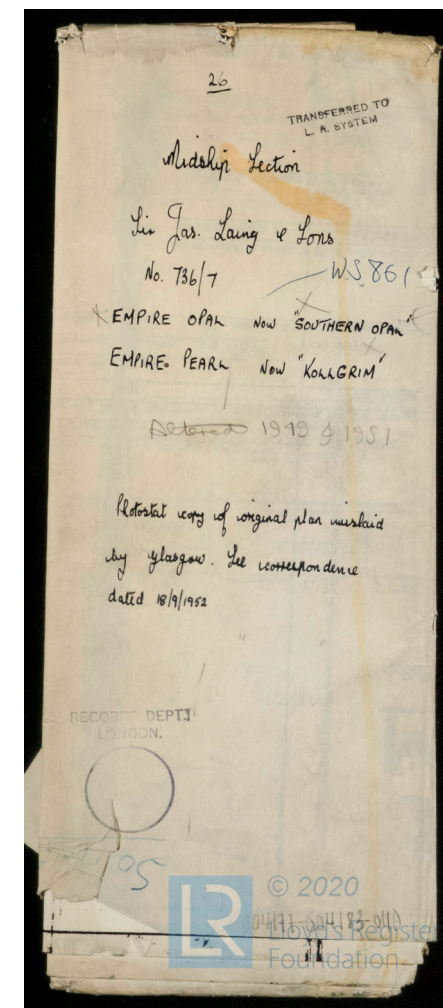 26
TRANSFERRED TO
L. R. SYSTEM
Midship Section
Sir Jas. Laing & Sons
No. 736/7
WS,861
EMPIRE OPAL NOW "SOUTHERN OPAL"
EMPIRE PEARL NOW "KOLLGRIM"
Altered 1949 & 1951
Photostat copy of original plan mislaid
by Glasgow. See correspondence
dated 18/9/1952
RECORDS DEPT.
LONDON.
LR
© 2020
Lloyd's Register
Foundation